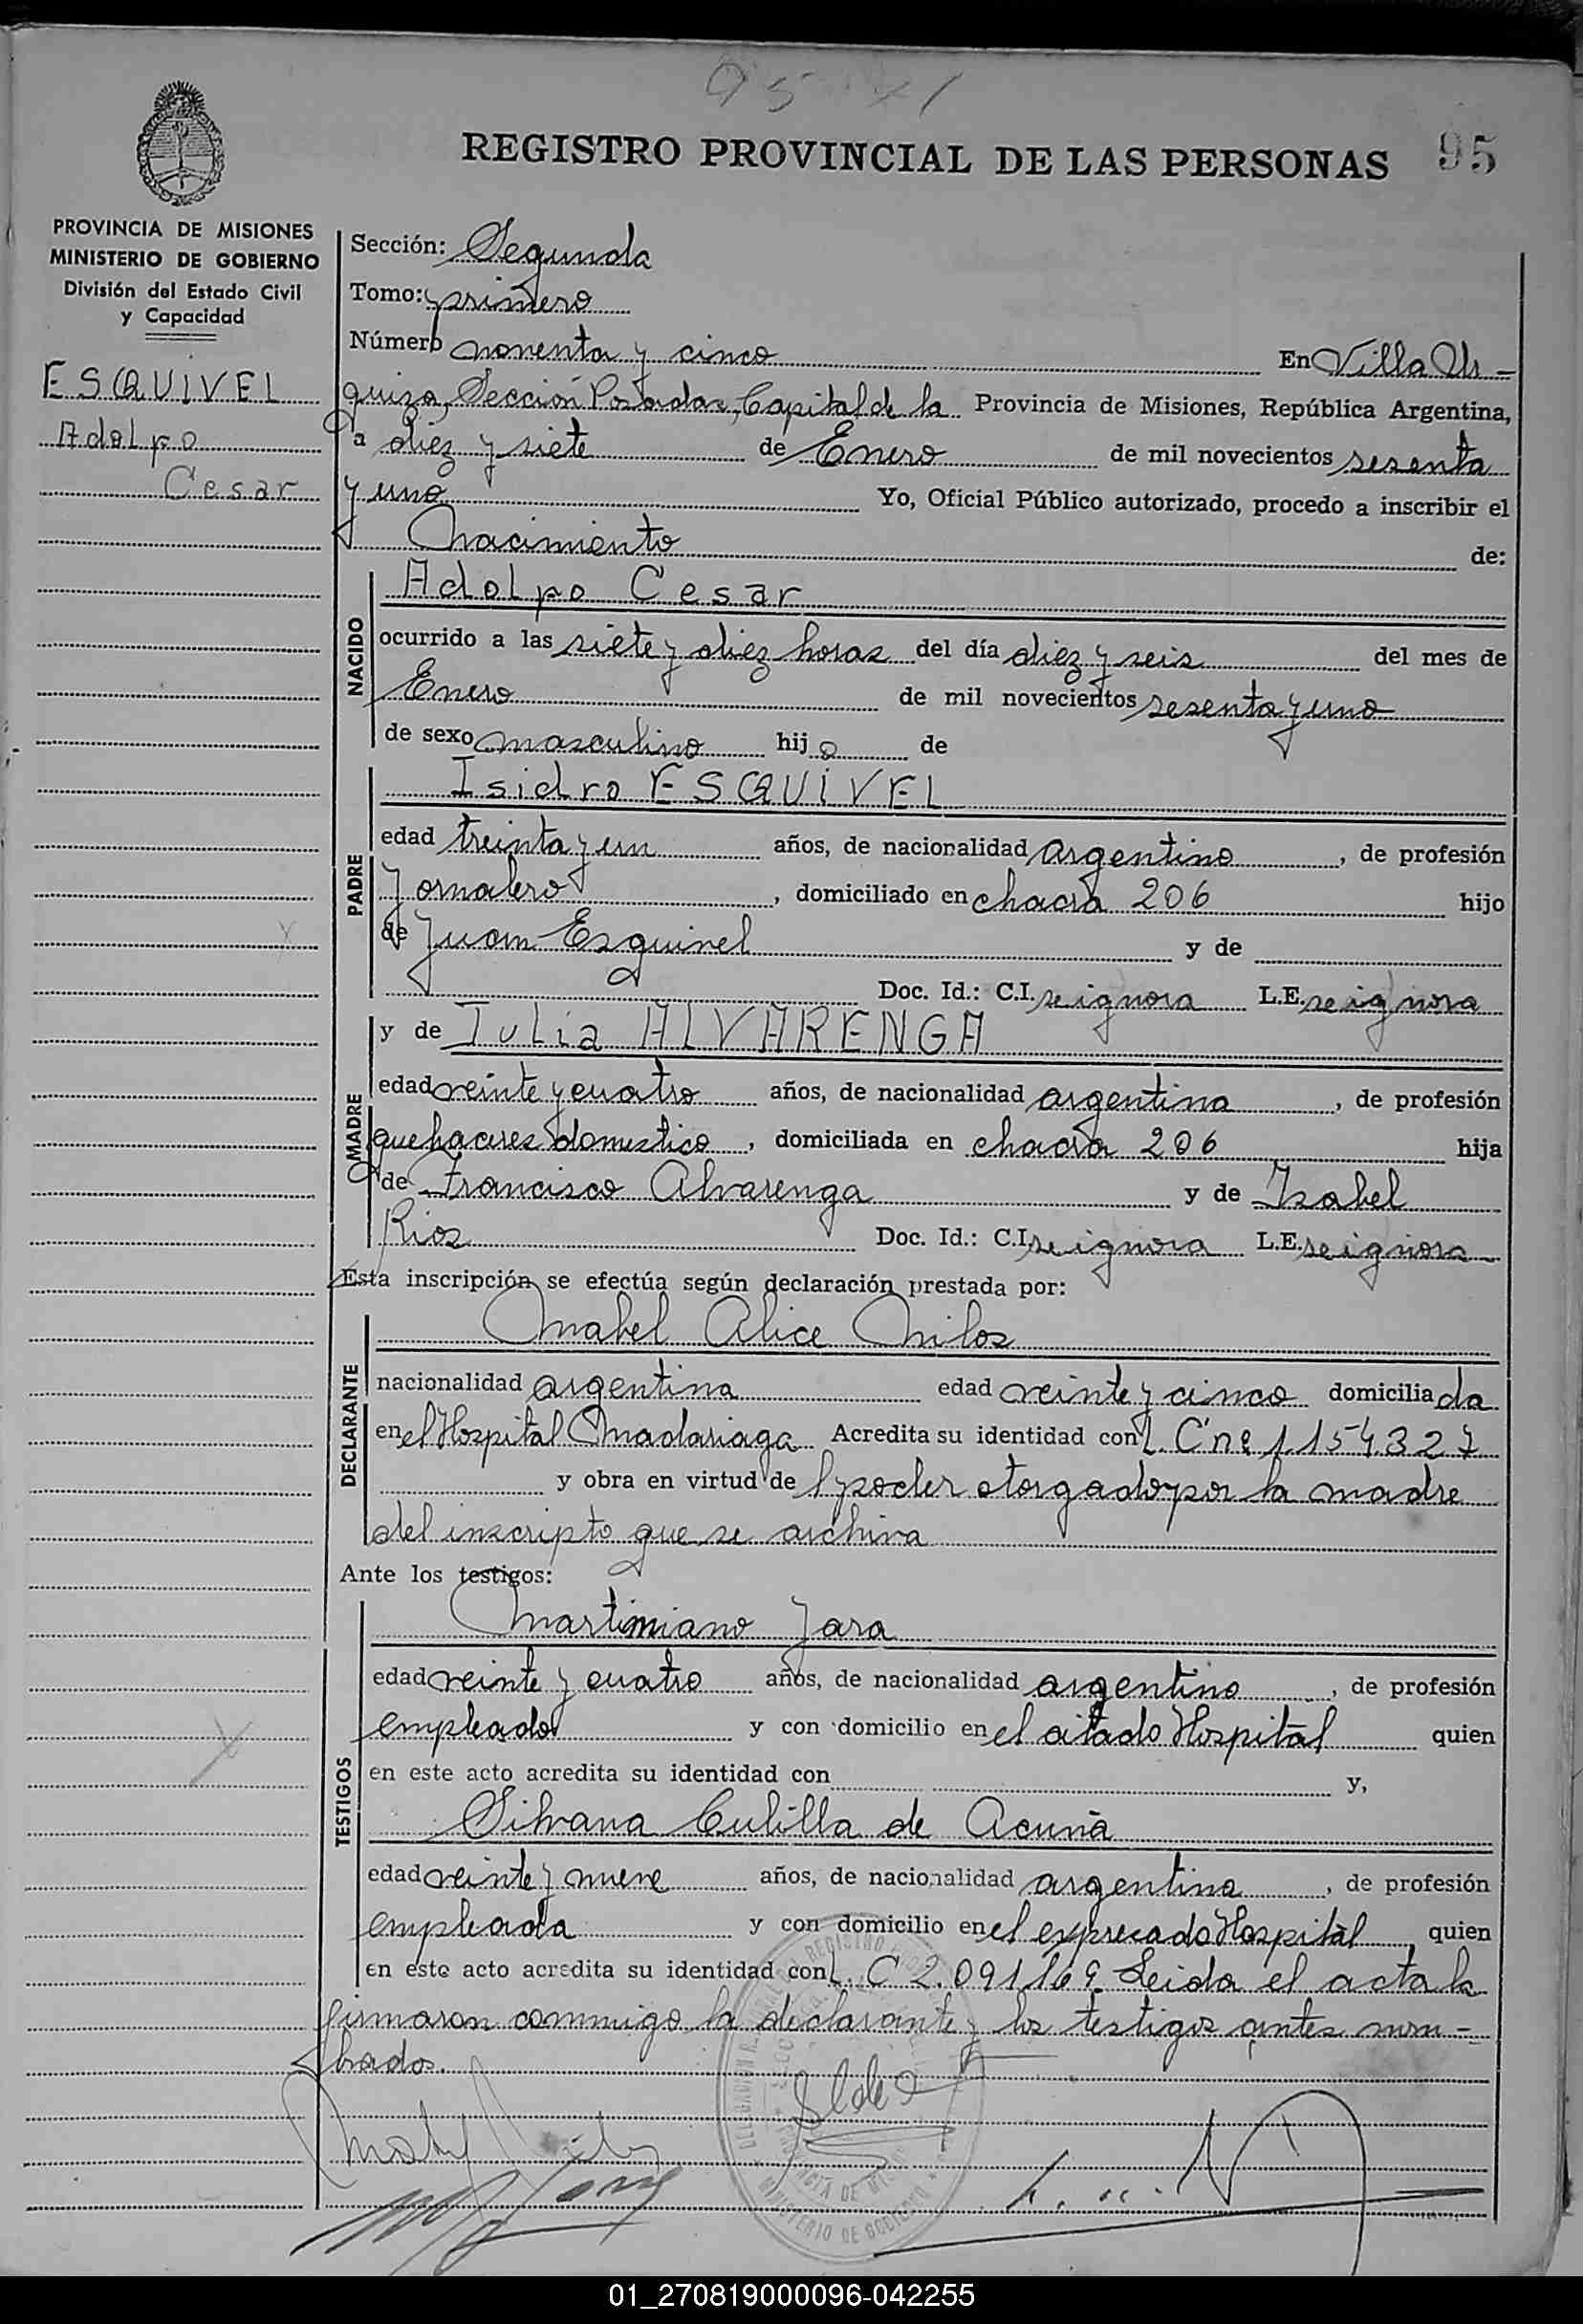 95
REGISTRO PROVINCIAL DE LAS PERSONAS 95
PROVINCIA DE MISIONES
MINISTERIO DE GOBIERNO
División del Estado Civil
y Capacidad
ESQUIVEL
Adolfo
Cesar
Sección: Segunda
Tomo: primero
Número noventa y cinco En Villa Ur-
quiza, Sección Posadas, Capital de la Provincia de Misiones, República Argentina,
a diez y siete de Enero de mil novecientos sesenta
y uno Yo, Oficial Público autorizado, procedo a inscribir el
Nacimiento de:
NACIDO
Adolfo Cesar
ocurrido a las siete y diez horas del día diez y seis del mes de
Enero de mil novecientos sesenta y uno
de sexo masculino hijo de
PADRE
Isidro ESQUIVEL
edad treinta y un años, de nacionalidad argentino, de profesión
Jornalero, domiciliado en chacra 206 hijo
de Juan Esquivel y de
Doc. Id.: C.I. se ignora L.E. se ignora
MADRE
y de Julia ALVARENGA
edad veinte y cuatro años, de nacionalidad argentina, de profesión
quehaceres domestico, domiciliada en chacra 206 hija
de Francisco Alvarenga y de Isabel
Rios Doc. Id.: C.I. se ignora L.E. se ignora
Esta inscripción se efectúa según declaración prestada por:
DECLARANTE
Mabel Alice Milos
nacionalidad argentina edad veinte y cinco domiciliada
en el Hospital Madariaga Acredita su identidad con L. C nº 1.154.327
y obra en virtud de l poder otorgado por la madre
del inscripto que se archiva
Ante los testigos:
TESTIGOS
Martiniano Jara
edad veinte y cuatro años, de nacionalidad argentino, de profesión
empleado y con domicilio en el citado Hospital quien
en este acto acredita su identidad con y,
Silvana Cubilla de Acuña
edad veinte y nueve años, de nacionalidad argentina, de profesión
empleada y con domicilio en el expresado Hospital, quien
en este acto acredita su identidad con L. C 2.091.169. Leida el acta la
firmaron conmigo la declarante y los testigos antes nom-
brados.
MINISTERIO DE GOBIERNO
01_270819000096-042255